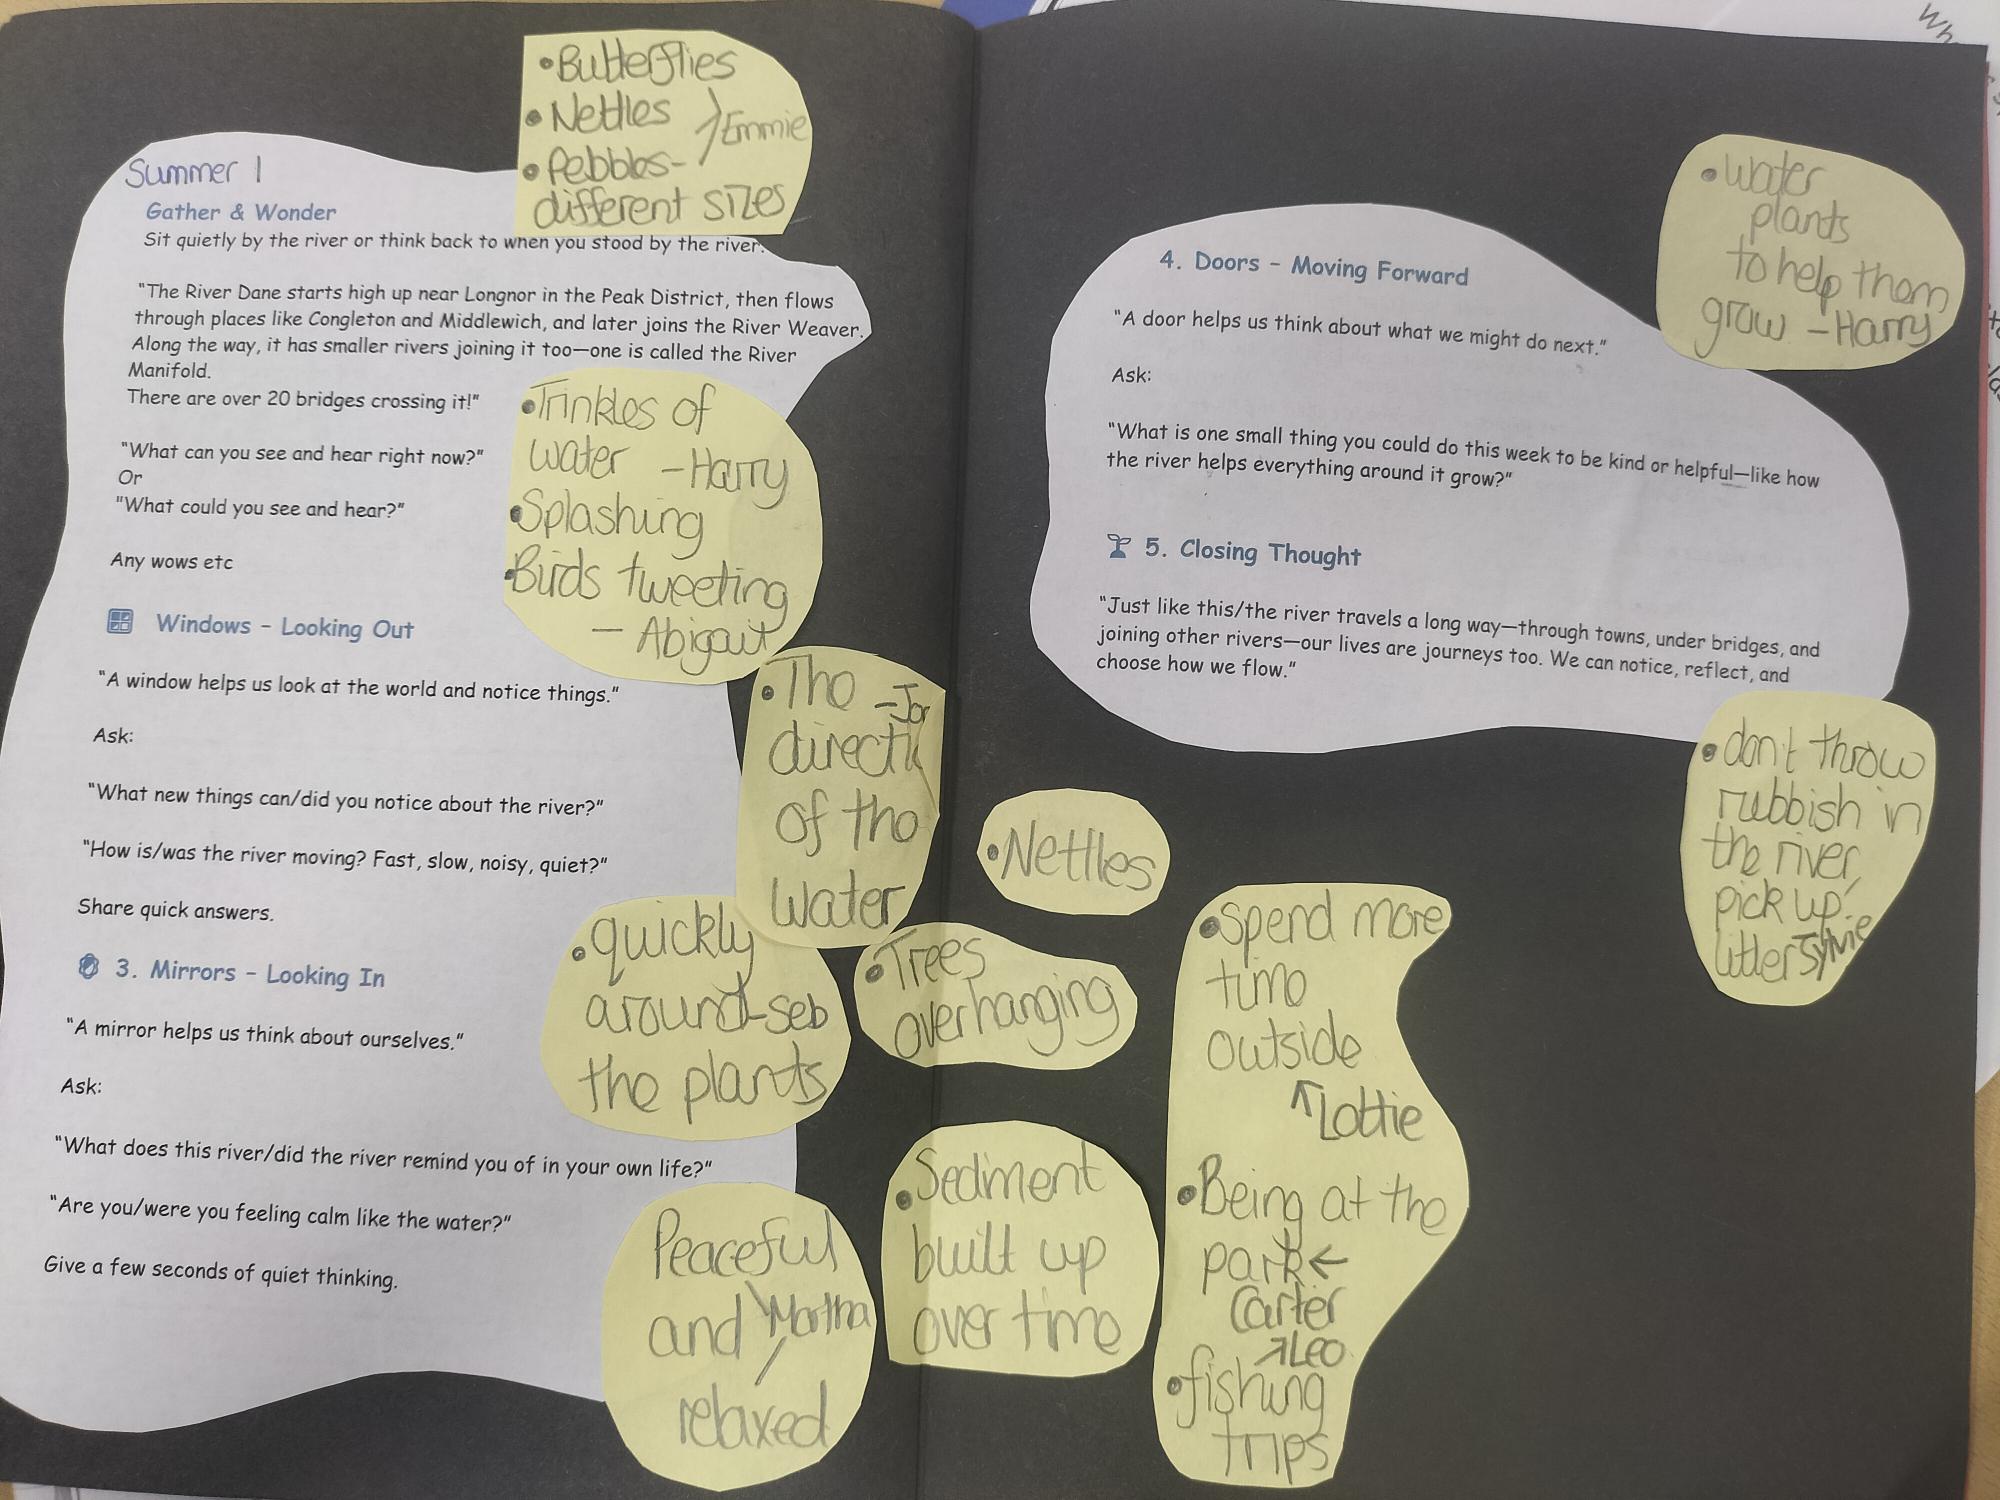 Summer 1
Gather & Wonder
Sit quietly by the river or think back to when you stood by the river.
"The River Dane starts high up near Longnor in the Peak District, then flows
through places like Congleton and Middlewich, and later joins the River Weaver.
Along the way, it has smaller rivers joining it too—one is called the River
Manifold.
There are over 20 bridges crossing it!"
"What can you see and hear right now?"
Or
"What could you see and hear?"
Any wows etc
Windows - Looking Out
"A window helps us look at the world and notice things."
Ask:
"What new things can/did you notice about the river?"
"How is/was the river moving? Fast, slow, noisy, quiet?"
Share quick answers.
3. Mirrors - Looking In
"A mirror helps us think about ourselves."
Ask:
"What does this river/did the river remind you of in your own life?"
"Are you/were you feeling calm like the water?"
Give a few seconds of quiet thinking.
• Butterflies
• Nettles
Emmie
• Pebbles-
different sizes
• Trinkles of
water - Harry
• Splashing
• Birds tweeting
- Abigail
• The
direct
of the
water
• quickly
around - seb
the plants
Peaceful
and Martha
relaxed
• Nettles
• Trees
overhanging
• Sediment
built up
over time
• Spend more
time
outside
Lottie
• Being at the
park ←
Carter
Leo
• fishing
trips
4. Doors - Moving Forward
"A door helps us think about what we might do next."
Ask:
"What is one small thing you could do this week to be kind or helpful—like how
the river helps everything around it grow?"
5. Closing Thought
"Just like this/the river travels a long way—through towns, under bridges, and
joining other rivers—our lives are journeys too. We can notice, reflect, and
choose how we flow."
• water
plants
to help them
grow - Harry
• don't throw
rubbish in
the river,
pick up
litter Sylvie